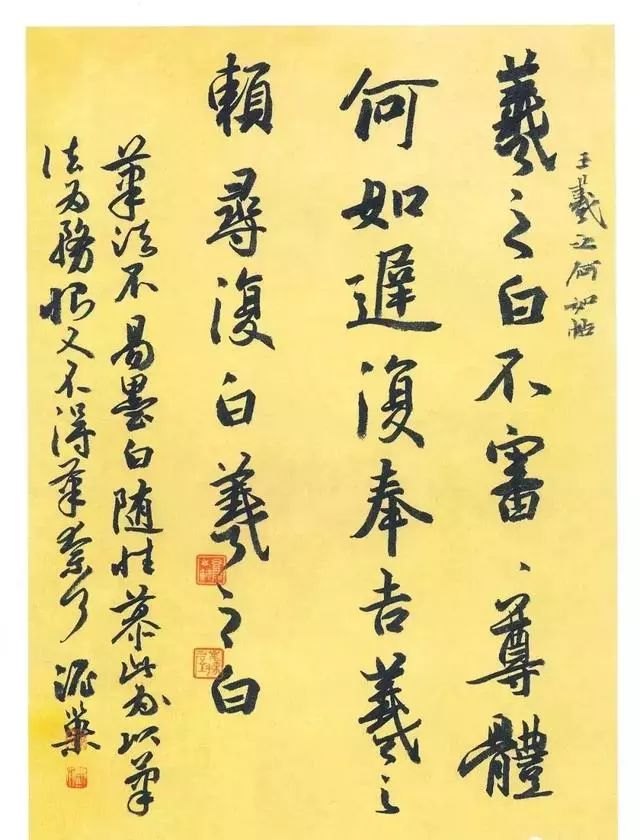 王羲之何如帖
羲之白不審、尊體
何如遲復奉告羲之
賴尋復白羲之白
筆法不易墨白随性慕此為以筆
法為務恨又不得筆